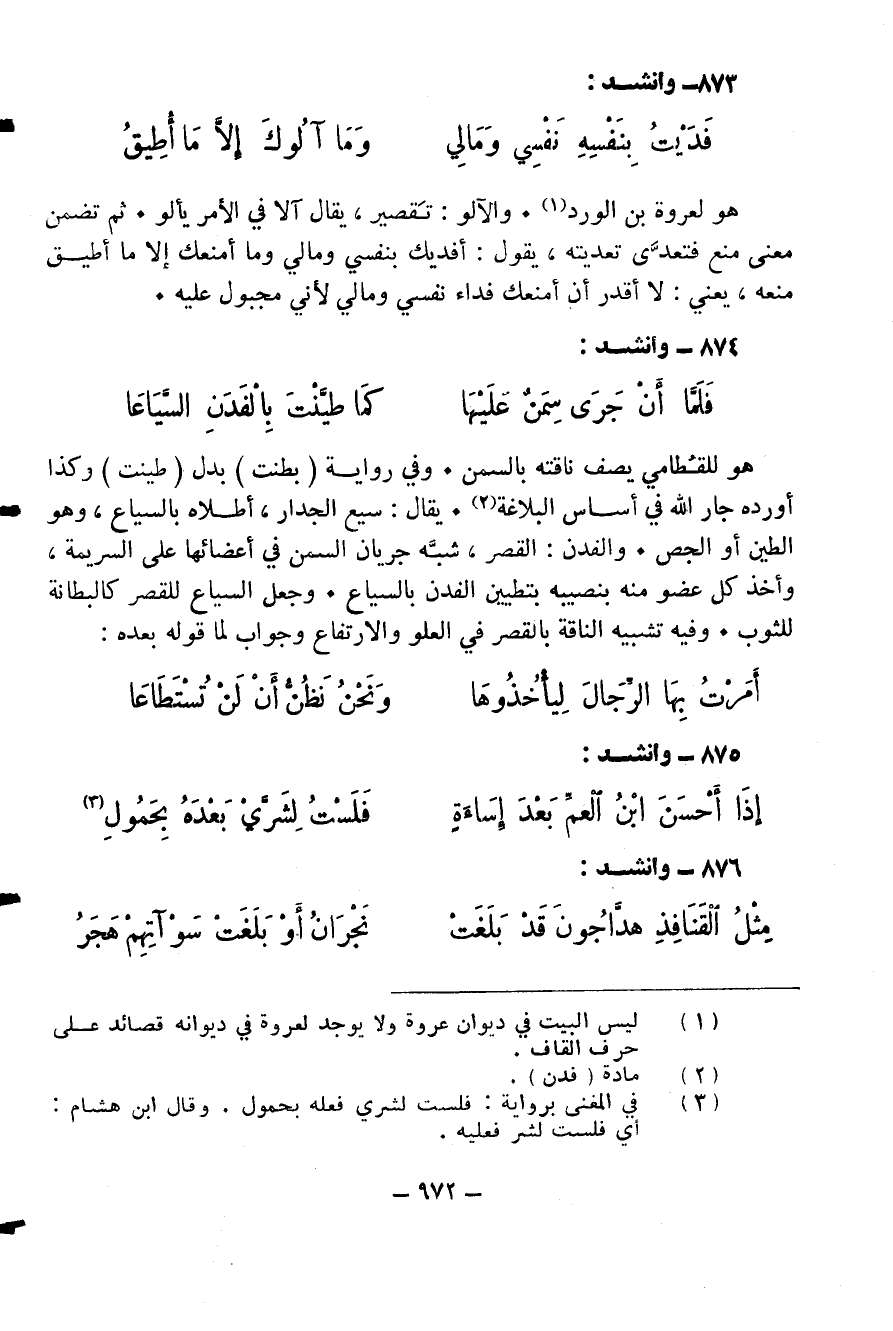 ٨٧٣ــ وانشــد :
فَدَيْتُ بِنَفْسِهِ نَفْسِي وَمَالِي وَمَا آلُوكَ إِلاَّ مَا أُطِيقُ
هو لعروة بن الورد(١) ٠ والآلو : تقصير ، يقال آلا في الأمر يألو ٠ ثم تضمن
معنى منع فتعدَّى تعديته ، يقول : أفديك بنفسي ومالي وما أمنعك إلا ما أطيــق
منعه ، يعني : لا أقدر أن أمنعك فداء نفسي ومالي لأني مجبول عليه ٠
٨٧٤ ــ وأنشــد :
فَلَمَّا أَنْ جَرَى سِمَنٌ عَلَيْهَا كَمَا طيَّنْتَ بِالْفَدَنِ السَّيَاعَا
هو للقُطامي يصف ناقته بالسمن ٠ وفي روايــة ( بطنت ) بدل ( طينت ) وكذا
أورده جار الله في أســاس البلاغة(٢) ٠ يقال : سيع الجدار ، أطــلاه بالسياع ، وهو
الطين أو الجص ٠ والفدن : القصر ، شبَّه جريان السمن في أعضائها على السريمة ،
وأخذ كل عضو منه بنصيبه بتطيين الفدن بالسياع ٠ وجعل السياع للقصر كالبطانة
للثوب ٠ وفيه تشبيه الناقة بالقصر في العلو والارتفاع وجواب لما قوله بعده :
أَمَرْتُ بِهَا الرِّجَالَ لِيَأْخُذُوهَا وَنَحْنُ نَظُنُّ أَنْ لَنْ تُسْتَطَاعَا
٨٧٥ ــ وانشــد :
إِذَا أَحْسَنَ ابْنُ الْعَمِّ بَعْدَ إِسَاءَةٍ فَلَسْتُ لِشَرَّيْ بَعْدَهُ بِحَمُولِ(٣)
٨٧٦ ــ وانشــد :
مِثْلُ الْقَنَافِذِ هدَّاجُونَ قَدْ بَلَغَتْ نَجْرَانُ أَوْ بَلَغَتْ سَوْآتِهِمْ هَجَرُ
(١) ليس البيت في ديوان عروة ولا يوجد لعروة في ديوانه قصائد عــلى
حرف القاف .
(٢) مادة ( فدن ) .
(٣) في المفنى برواية : فلست لشري فعله بحمول . وقال ابن هشام :
أي فلست لشر فعليه .
ــ ٩٧٢ ــ